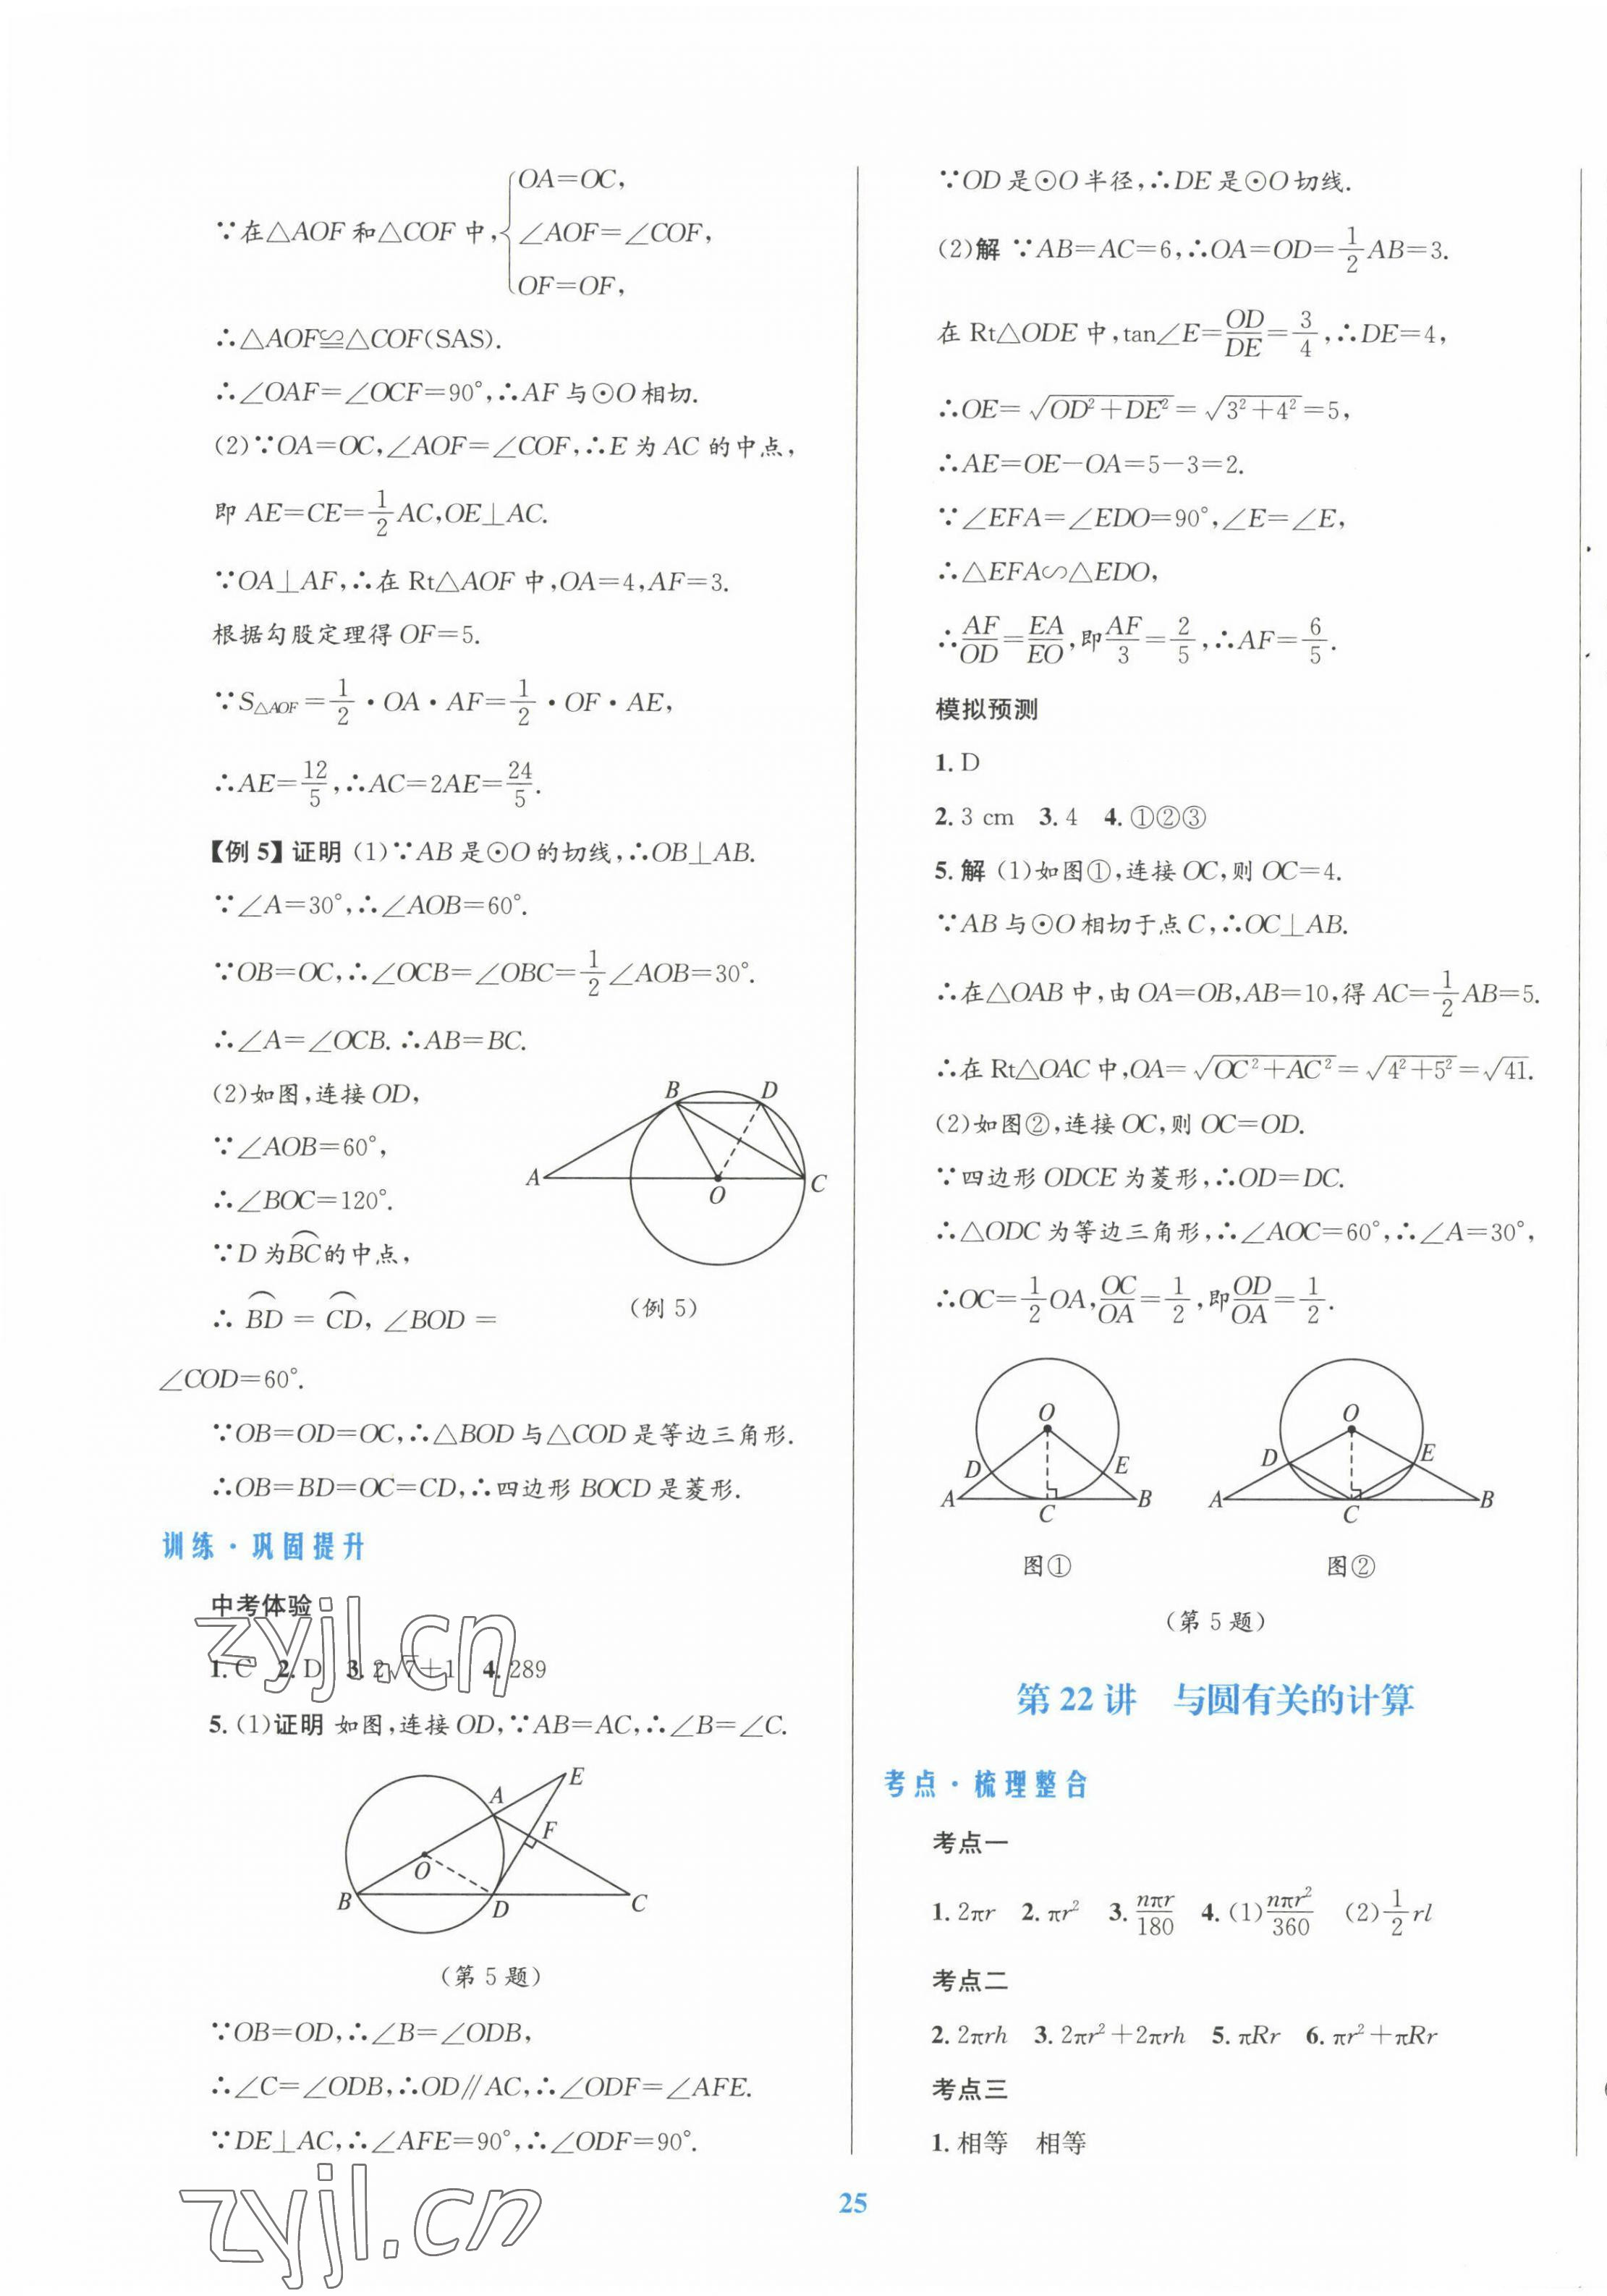 ∵在△AOF和△COF中,{OA=OC,
∠AOF=∠COF,
OF=OF,
∴△AOF≌△COF(SAS).
∴∠OAF=∠OCF=90°,∴AF与⊙O相切.
(2)∵OA=OC,∠AOF=∠COF,∴E为AC的中点,
即AE=CE=1/2AC,OE⊥AC.
∵OA⊥AF,∴在Rt△AOF中,OA=4,AF=3.
根据勾股定理得OF=5.
∵S△AOF=1/2·OA·AF=1/2·OF·AE,
∴AE=12/5,∴AC=2AE=24/5.
【例5】证明 (1)∵AB是⊙O的切线,∴OB⊥AB.
∵∠A=30°,∴∠AOB=60°.
∵OB=OC,∴∠OCB=∠OBC=1/2∠AOB=30°.
∴∠A=∠OCB.∴AB=BC.
(2)如图,连接OD,
∵∠AOB=60°,
∴∠BOC=120°.
∵D为⌒BC的中点,
∴⌒BD=⌒CD,∠BOD=
∠COD=60°.
B D
A O C
(例5)
∵OB=OD=OC,∴△BOD与△COD是等边三角形.
∴OB=BD=OC=CD,∴四边形BOCD是菱形.
训练·巩固提升
中考体验
1.C 2.D 3.2√7+1 4.289
5.(1)证明 如图,连接OD,∵AB=AC,∴∠B=∠C.
E
A
F
O
B D C
(第5题)
∵OB=OD,∴∠B=∠ODB,
∴∠C=∠ODB,∴OD∥AC,∴∠ODF=∠AFE.
∵DE⊥AC,∴∠AFE=90°,∴∠ODF=90°.
∵OD是⊙O半径,∴DE是⊙O切线.
(2)解 ∵AB=AC=6,∴OA=OD=1/2AB=3.
在Rt△ODE中,tan∠E=OD/DE=3/4,∴DE=4,
∴OE=√(OD²+DE²)=√(3²+4²)=5,
∴AE=OE-OA=5-3=2.
∵∠EFA=∠EDO=90°,∠E=∠E,
∴△EFA∽△EDO,
∴AF/OD=EA/EO,即AF/3=2/5,∴AF=6/5.
模拟预测
1.D
2.3 cm 3.4 4.①②③
5.解 (1)如图①,连接OC,则OC=4.
∵AB与⊙O相切于点C,∴OC⊥AB.
∴在△OAB中,由OA=OB,AB=10,得AC=1/2AB=5.
∴在Rt△OAC中,OA=√(OC²+AC²)=√(4²+5²)=√41.
(2)如图②,连接OC,则OC=OD.
∵四边形ODCE为菱形,∴OD=DC.
∴△ODC为等边三角形,∴∠AOC=60°,∴∠A=30°,
∴OC=1/2OA,OC/OA=1/2,即OD/OA=1/2.
O O
D E D E
A C B A C B
图① 图②
(第5题)
第22讲 与圆有关的计算
考点·梳理整合
考点一
1.2πr 2.πr² 3.nπr/180 4.(1)nπr²/360 (2)1/2rl
考点二
2.2πrh 3.2πr²+2πrh 5.πRr 6.πr²+πRr
考点三
1.相等 相等
25
zyjl.cn
zyjl.cn